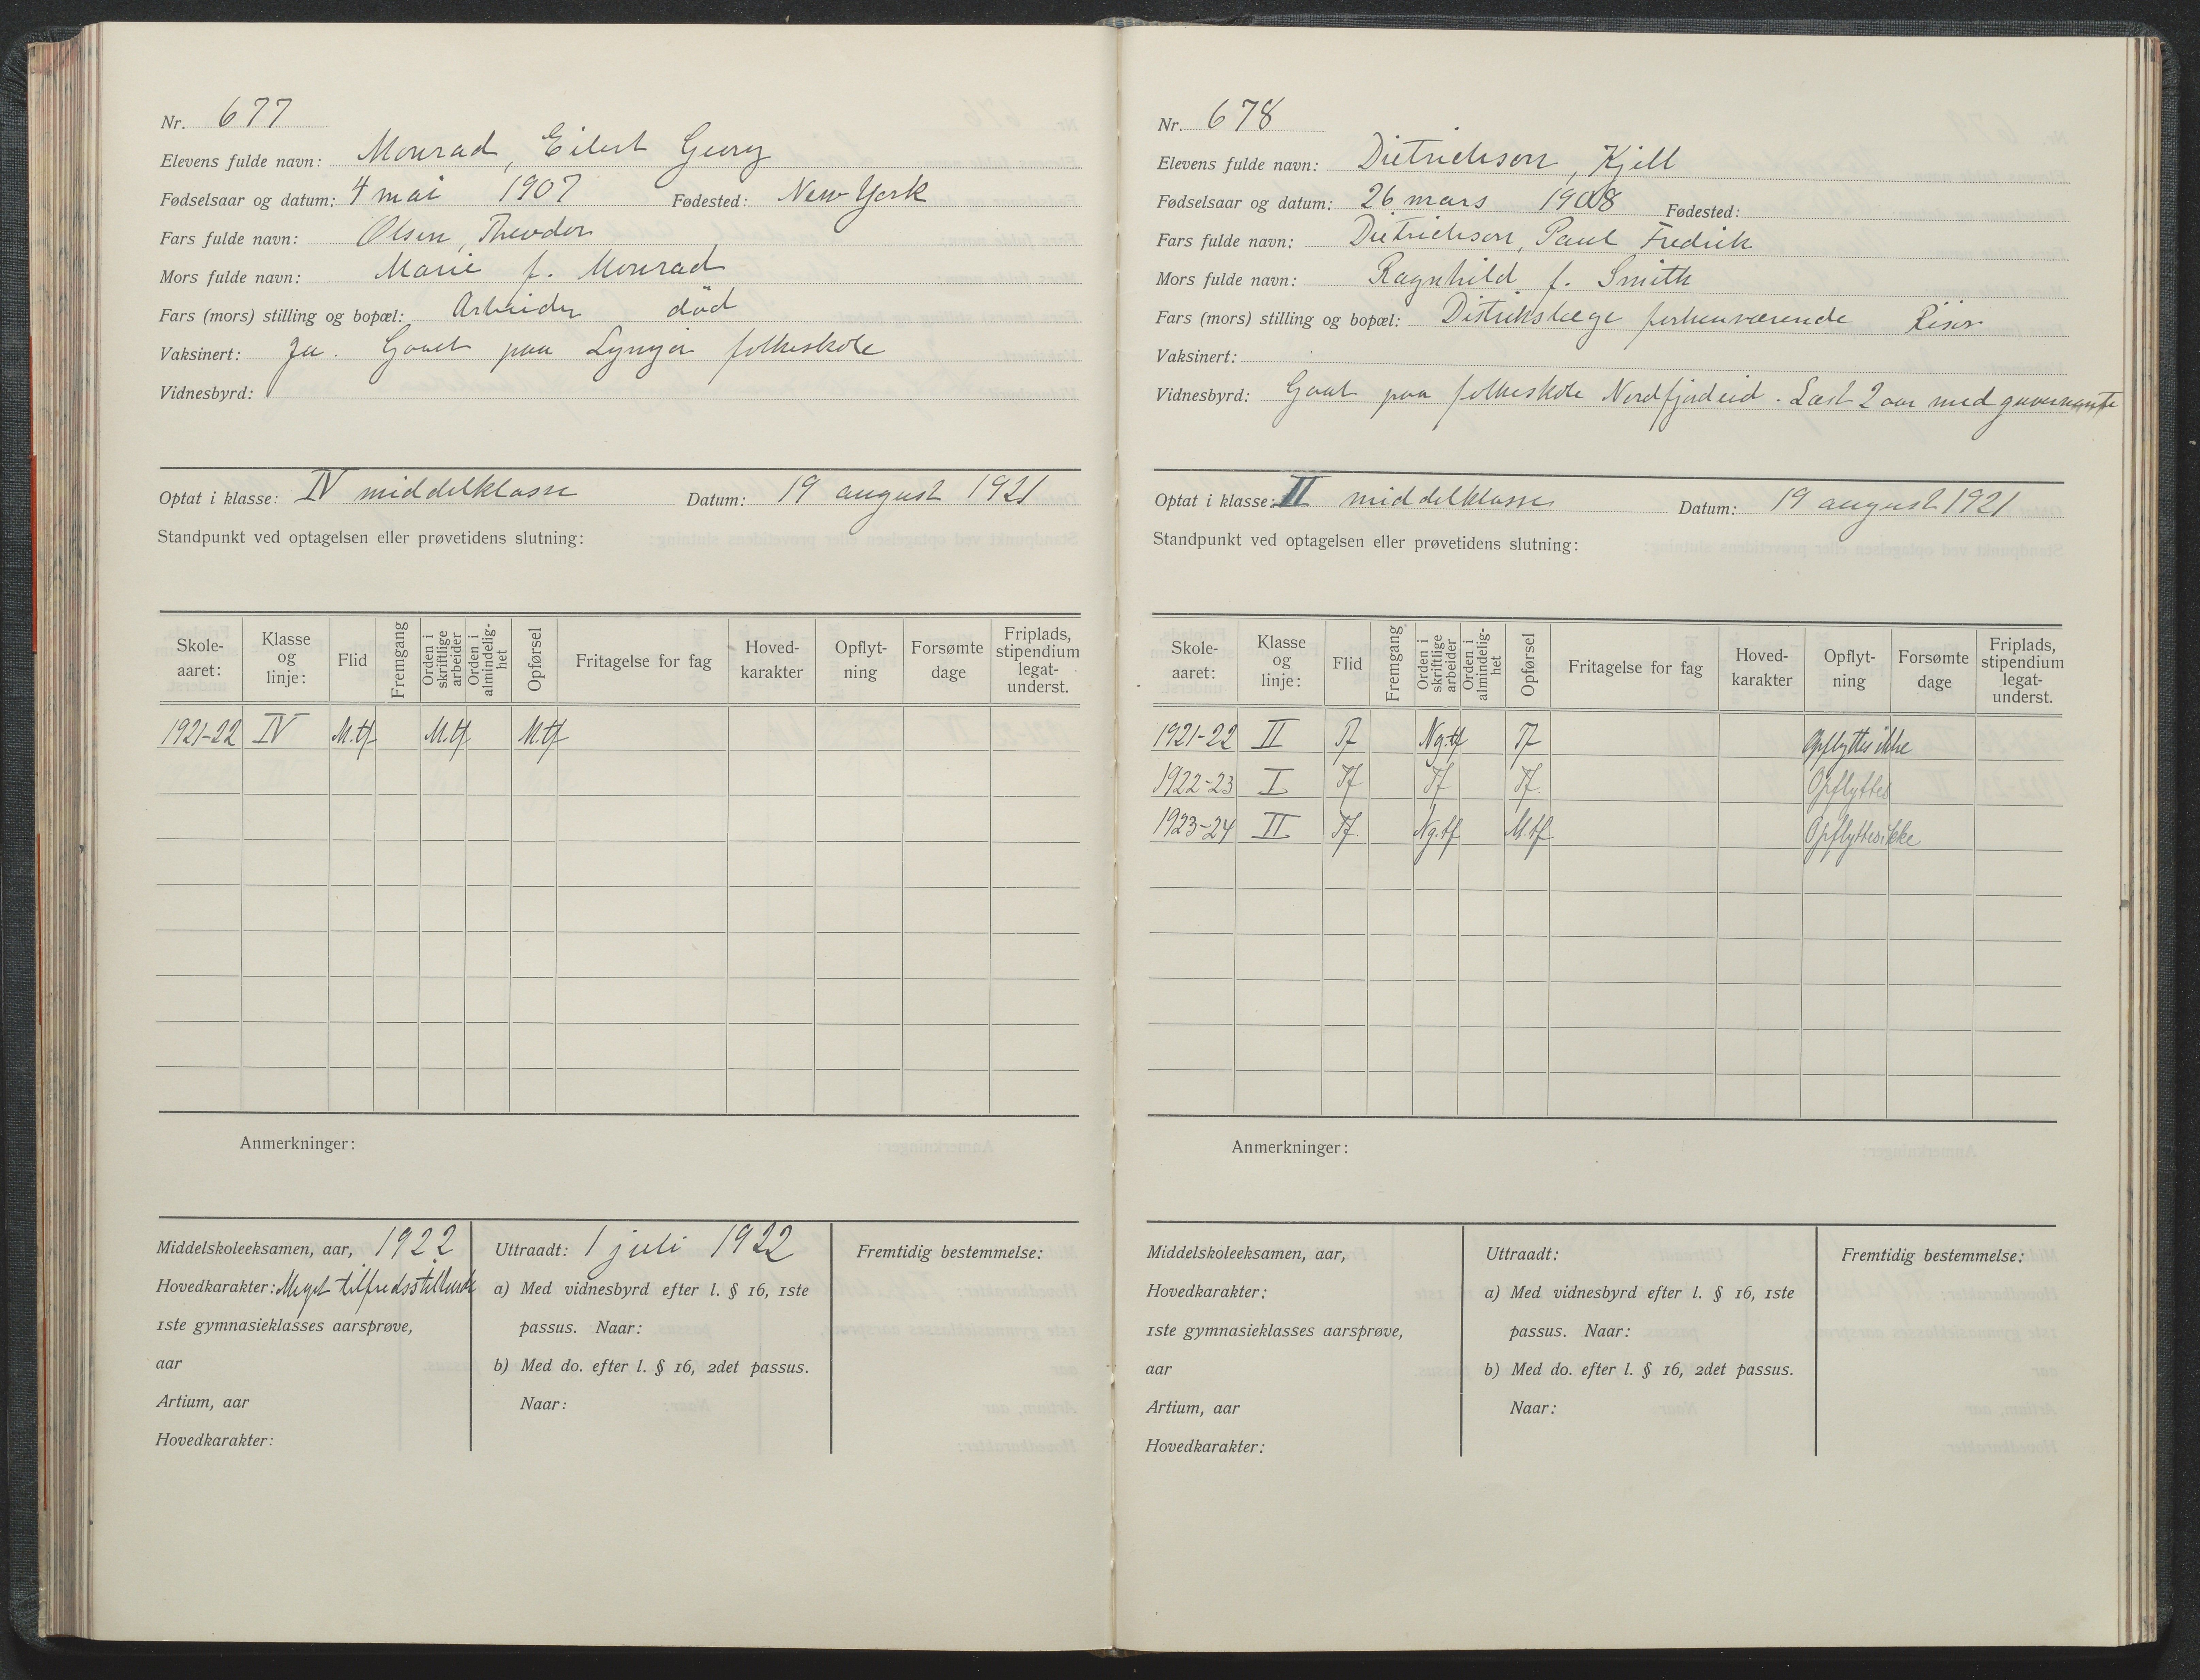 Nr. 677
Elevens fulde navn: Monrad, Eilert Georg
Fødselsaar og datum: 4 mai 1907 Fødested: New York
Fars fulde navn: Olsen, Theodor
Mors fulde navn: Marie f. Monrad
Fars (mors) stilling og bopæl: Arbeider død
Vaksinert: Ja. Gaaet paa Lyngør folkeskole
Vidnesbyrd:
Optat i klasse: IV middelklasse Datum: 19 august 1921
Standpunkt ved optagelsen eller prøvetidens slutning:
Skole-aaret: Klasse og linje: Flid Fremgang Orden i skriftlige arbeider Orden i almindelig-het Opførsel Fritagelse for fag Hoved-karakter Opflyt-ning Forsømte dage Friplads, stipendium legat-underst.
1921-22 IV M.tf M.tf M.tf
Anmerkninger:
Middelskoleeksamen, aar, 1922
Hovedkarakter: Meget tilfredsstillende
1ste gymnasieklasses aarsprøve,
aar
Artium, aar
Hovedkarakter:
Uttraadt: 1 juli 1922
a) Med vidnesbyrd efter l. § 16, 1ste
passus. Naar:
b) Med do. efter l. § 16, 2det passus.
Naar:
Fremtidig bestemmelse:
Nr. 678
Elevens fulde navn: Dietrichson, Kjell
Fødselsaar og datum: 26 mars 1908 Fødested:
Fars fulde navn: Dietrichson, Paul Fredrik
Mors fulde navn: Ragnhild f. Smith
Fars (mors) stilling og bopæl: Distriktslæge forhenværende Risør
Vaksinert:
Vidnesbyrd: Gaat paa folkeskole Nordfjordeid. Læst 2 aar med guvernante
Optat i klasse: II middelklasse Datum: 19 august 1921
Standpunkt ved optagelsen eller prøvetidens slutning:
Skole-aaret: Klasse og linje: Flid Fremgang Orden i skriftlige arbeider Orden i almindelig-het Opførsel Fritagelse for fag Hoved-karakter Opflyt-ning Forsømte dage Friplads, stipendium legat-underst.
1921-22 II Tf Ng.tf Tf Opflyttes ikke
1922-23 I Tf Tf Tf. Opflyttes
1923-24 II Tf. Ng.tf M.tf Opflyttes ikke
Anmerkninger:
Middelskoleeksamen, aar,
Hovedkarakter:
1ste gymnasieklasses aarsprøve,
aar
Artium, aar
Hovedkarakter:
Uttraadt:
a) Med vidnesbyrd efter l. § 16, 1ste
passus. Naar:
b) Med do. efter l. § 16, 2det passus.
Naar:
Fremtidig bestemmelse: